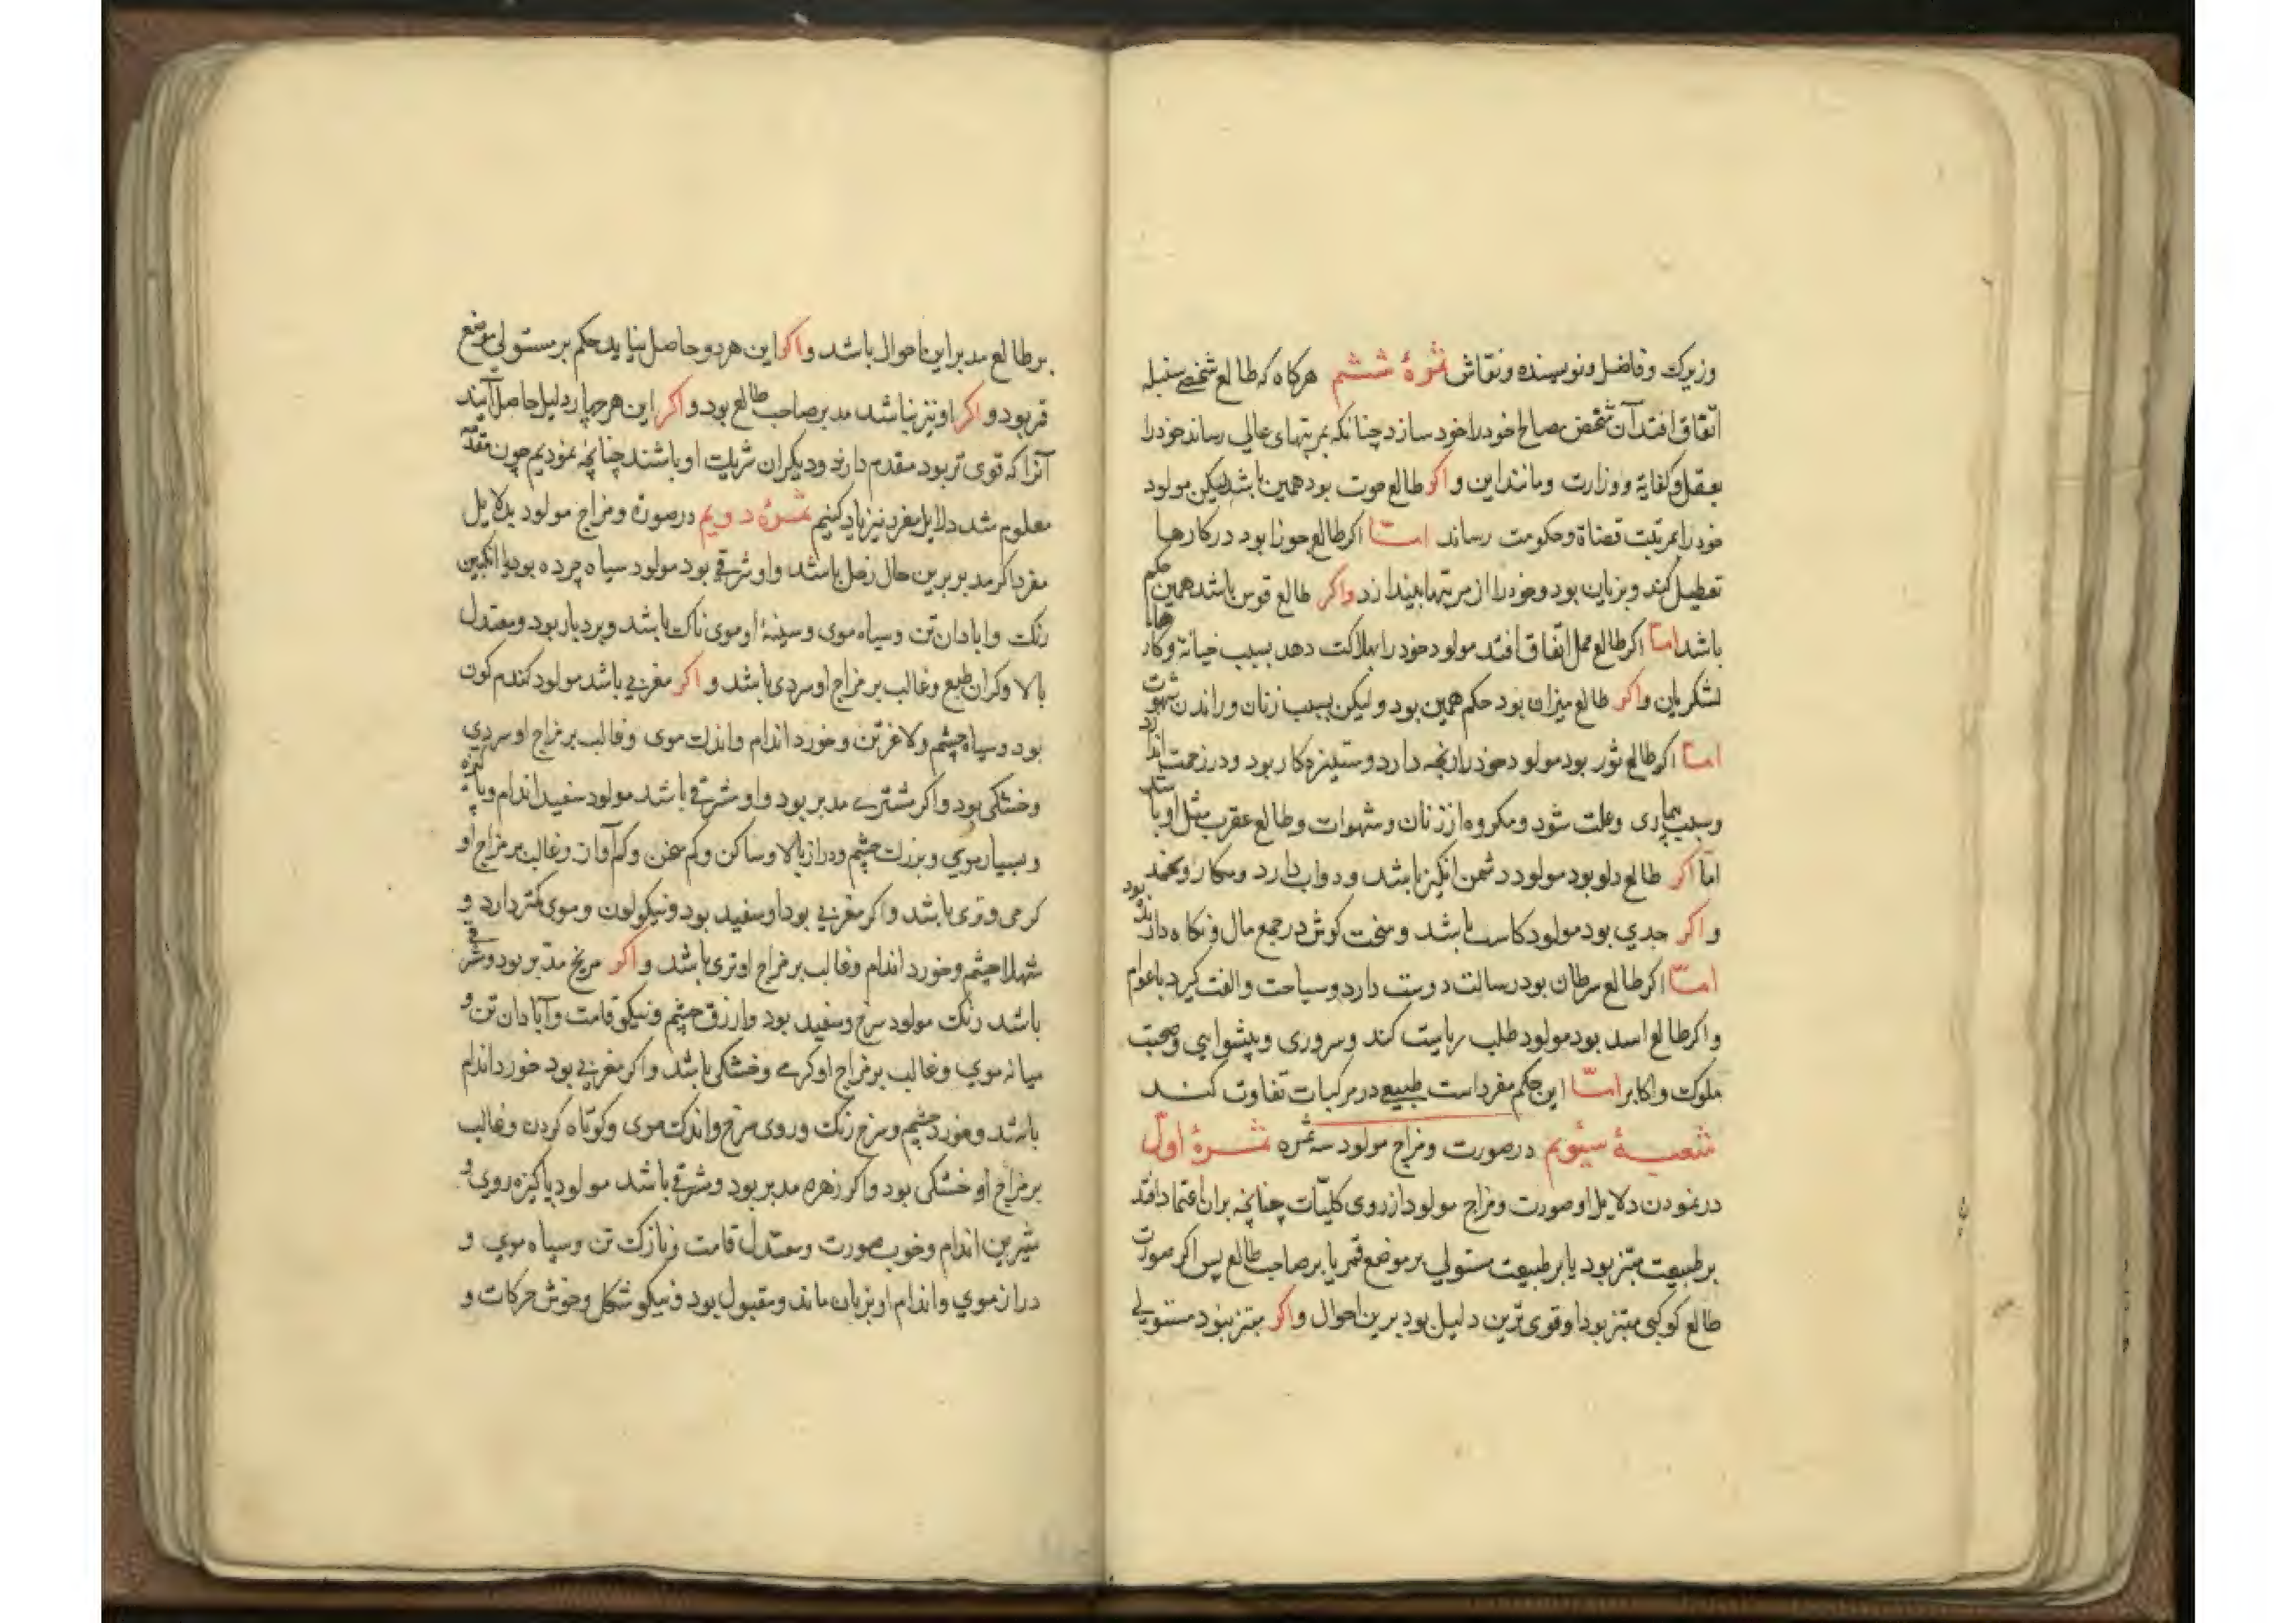 وزیرک و فاضل و نویسنده و نقاش ثمرهٔ ششم هرکاه که طالع شخصی سنبله
اتفاق افتد آن شخص مصالح خود را خود سازد چنانکه بمرتبهای عالی رساند خود را
بعقل و کفایة و وزارت و مانند این و اکر طالع حوت بود همین باشد لیکن مولود
خود را بمرتبت قضاة و حکومت رساند امّا اکر طالع جوزا بود در کارها
تعطیل کند و بزیان بود و خود را از مرتبتها بیندازد و اکر طالع قوس باشد همین حکم
باشد امّا اکر طالع حمل اتفاق افتد مولود خود را بهلاکت دهد بسبب خیانة و کارهاء
لشکریان و اکر طالع میزان بود حکم همین بود و لیکن بسبب زنان و راندن شهوت
امّا اکر طالع ثور بود مولود خود را رنجه دارد و ستیزه کار بود و در زحمت اندازد
و بسبب بیماری و علت شود و مکروه از زنان و شهوات و طالع عقرب مثل او باشد
امّا اکر طالع دلو بود مولود دشمن انکیز باشد و دواب دارد و مکار و بود
و اکر جدی بود مولود کاسب باشد و سخت کوش در جمع مال و نکاه دارد
امّا اکر طالع سرطان بود رسالت دوست دارد و سیاحت و الفت کیرد با عوام
و اکر طالع اسد بود مولود طلب ریاست کند و سروری و پیشوایی و صحبت
ملوک و اکابر امّا این حکم مفرد است طبیعی در مرکبات تفاوت کند
شعبهٔ سیّوم در صورت و مزاج مولود سه ثمره ثمرهٔ اوّل
در نمودن دلایل او صورت و مزاج مولود از روی کلیّات چنانچه بران اعتماد افتد
بر طبیعت مبتز بود یا بر طبیعت مستولی بر موضع قمر یا بر صاحب طالع پس اکر صورت
طالع کوکبی مبتز بود او قوی ترین دلیل بود برین احوال و اکر مبتز نبود مستولی
بر طالع مدبر این احوال باشد و اکر این هر دو حاصل نیاید حکم بر مستولی موضع
قمر بود و اکر او نیز نباشد مدبر صاحب طالع بود و اکر این هر چهار دلیل حاصل آیند
آنرا که قوی تر بود مقدم دارند و دیکران شریک او باشند چنانچه نمودیم چون مقدّمه
معلوم شد دلایل مفرد نیز یاد کنیم ثمرهٔ دویم در صورة و مزاج مولود بدلایل
مفرد اکر مدبر برین حال زحل باشد و او شرقی بود مولود سیاه چرده بود یا انکبین
رنک و ابادان تن و سیاه موی و سینهٔ او موی ناک باشد و بردبار بود و معتدل
بالا و کران طبع و غالب بر مزاج او سردی باشد و اکر مغربی باشد مولود کندم کون
بود و سیاه چشم و لاغر تن و خورد اندام و اندک موی و غالب بر مزاج او سردی
و خشکی بود و اکر مشتری مدبر بود و او شرقی باشد مولود سفید اندام و پاکیزه
و بسیار موی و بزرک چشم و دراز بالا و ساکن و کم سخن و کم آواز و غالب بر مزاج او
کرمی و تری باشد و اکر مغربی بود او سفید بود و نیکو لون و موی کمتر دارد و
شهلا چشم و خورد اندام و غالب بر مزاج او تری باشد و اکر مریخ مدّبر بود و شرقی
باشد رنک مولود سرخ و سفید بود و ازرق چشم و نیکو قامت و آبادان تن و
میانه موی و غالب بر مزاج او کرمی و خشکی باشد و اکر مغربی بود خورد اندام
باشد و خورد چشم و سرخ رنک و روی سرخ و اندک موی و کوتاه کردن و غالب
بر مزاج او خشکی بود و اکر زهره مدبر بود و شرقی باشد مولود پاکیزه روی و
شیرین اندام و خوب صورت و معتدل قامت و نازک تن و سیاه موی و
دراز موی و اندام او بزنان ماند و مقبول بود و نیکو شکل و خوش حرکات و